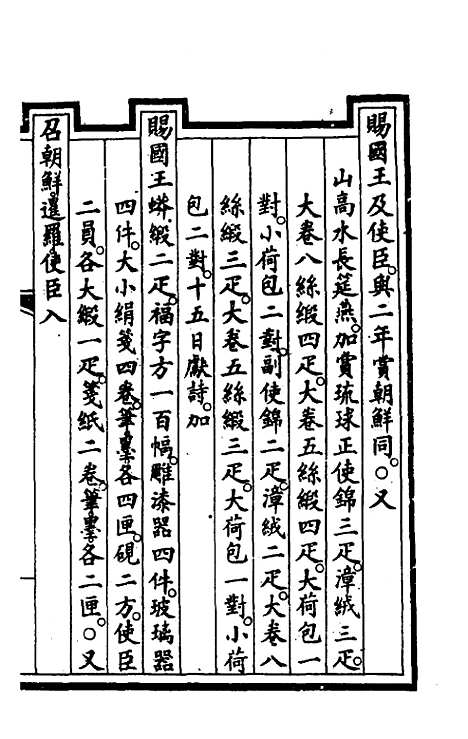 賜國王及使臣。與二年賞朝鮮同。○又
山高水長筵燕。加賞琉球正使錦三疋。漳絨三疋。
大卷八絲緞四疋。大卷五絲緞四疋。大荷包一
對。小荷包二對。副使錦二疋。漳絨二疋。大卷八
絲緞三疋。大卷五絲緞三疋。大荷包一對。小荷
包二對。十五日獻詩。加
賜國王蟒緞二疋。福字方一百幅。雕漆器四件。玻璃器
四件。大小絹箋四卷。筆墨各四匣。硯二方。使臣
二員。各大緞一疋。箋紙二卷。筆墨各二匣。○又
召朝鮮暹羅使臣入